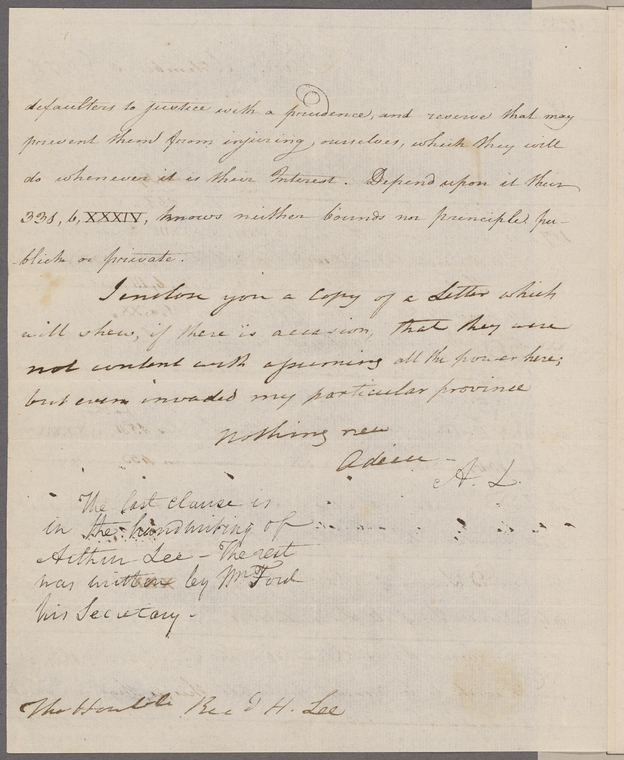 defaulters to justice with a prudence, and reserve that may
prevent them from injuring ourselves, which they will
do whenever it is their Interest. Depend upon it their
331, 6, XXXIV, knows neither bounds nor principle pu-
blick or private.
I enclose you a Copy of a Letter which
will shew, if there is occasion, that they were
not content with assuming all the power here;
but even invaded my particular province
Nothing new
Adieu -
A. L.
The last clause is
in the handwriting of
Arthur Lee - The rest
was written by Mr Ford
his Secretary -
The Honble Recd H. Lee